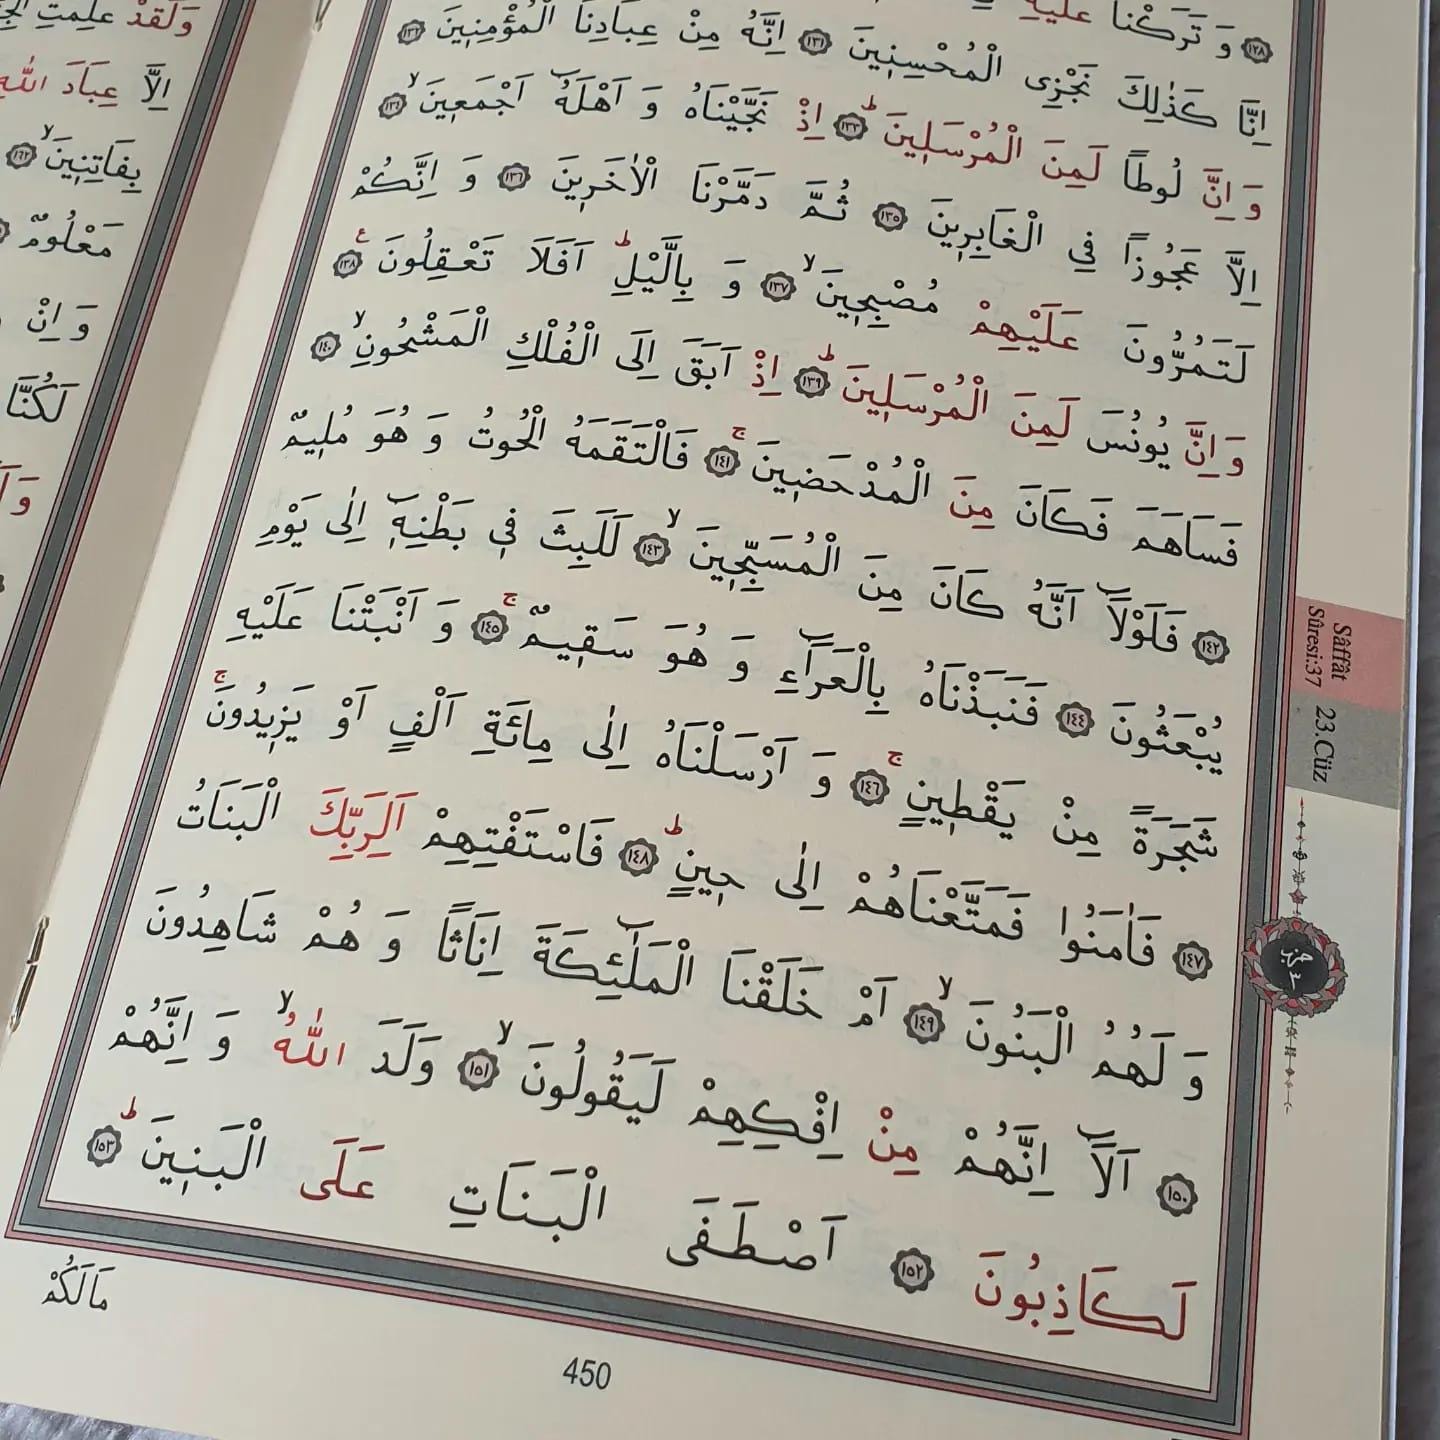 ﴿١٢٨﴾ وَ تَرَكْنَا عَلَيْهِ
اِنَّا كَذٰلِكَ نَجْزِى الْمُحْسِنٖينَ ﴿١٣١﴾ اِنَّهُ مِنْ عِبَادِنَا الْمُؤْمِنٖينَ ﴿١٣٢﴾
وَ اِنَّ لُوطاً لَمِنَ الْمُرْسَلٖينَ ؕ ﴿١٣٣﴾ اِذْ نَجَّيْنَاهُ وَ اَهْلَهُٓ اَجْمَعٖينَ ۙ ﴿١٣٤﴾
اِلَّا عَجُوزاً فِي الْغَابِرٖينَ ﴿١٣٥﴾ ثُمَّ دَمَّرْنَا الْاٰخَرٖينَ ﴿١٣٦﴾ وَ اِنَّكُمْ
لَتَمُرُّونَ عَلَيْهِمْ مُصْبِحٖينَ ۙ ﴿١٣٧﴾ وَ بِالَّيْلِ ؕ اَفَلَا تَعْقِلُونَ ع ﴿١٣٨﴾
وَ اِنَّ يُونُسَ لَمِنَ الْمُرْسَلٖينَ ؕ ﴿١٣٩﴾ اِذْ اَبَقَ اِلَى الْفُلْكِ الْمَشْحُونِ ۙ ﴿١٤٠﴾
فَسَاهَمَ فَكَانَ مِنَ الْمُدْحَضٖينَ ۚ ﴿١٤١﴾ فَالْتَقَمَهُ الْحُوتُ وَ هُوَ مُلٖيمٌ
﴿١٤٢﴾ فَلَوْلَٓا اَنَّهُ كَانَ مِنَ الْمُسَبِّحٖينَ ۙ ﴿١٤٣﴾ لَلَبِثَ فٖي بَطْنِهٖٓ اِلٰى يَوْمِ
يُبْعَثُونَ ﴿١٤٤﴾ فَنَبَذْنَاهُ بِالْعَرَٓاءِ وَ هُوَ سَقٖيمٌ ۚ ﴿١٤٥﴾ وَ اَنْبَتْنَا عَلَيْهِ
شَجَرَةً مِنْ يَقْطٖينٍ ۚ ﴿١٤٦﴾ وَ اَرْسَلْنَاهُ اِلٰى مِائَةِ اَلْفٍ اَوْ يَزٖيدُونَ ۚ
﴿١٤٧﴾ فَاٰمَنُوا فَمَتَّعْنَاهُمْ اِلٰى حٖينٍ ؕ ﴿١٤٨﴾ فَاسْتَفْتِهِمْ اَلِرَبِّكَ الْبَنَاتُ
وَ لَهُمُ الْبَنُونَ ۙ ﴿١٤٩﴾ اَمْ خَلَقْنَا الْمَلٰٓئِكَةَ اِنَاثاً وَ هُمْ شَاهِدُونَ
﴿١٥٠﴾ اَلَٓا اِنَّهُمْ مِنْ اِفْكِهِمْ لَيَقُولُونَ ۙ ﴿١٥١﴾ وَلَدَ اللّٰهُ ۙ وَ اِنَّهُمْ
لَكَاذِبُونَ ﴿١٥٢﴾ اَصْطَفَى الْبَنَاتِ عَلَى الْبَنٖينَ ؕ ﴿١٥٣﴾
مَالَكُمْ
450
Sâffât
Sûresi:37
23.Cüz
حزب
٣
وَلَقَدْ عَلِمَتِ
اِلَّا عِبَادَ اللّٰهِ
بِفَاتِنٖينَ ۙ ﴿١٦٢﴾
مَعْلُومٌ
وَ اِنْ
لَكُنَّا